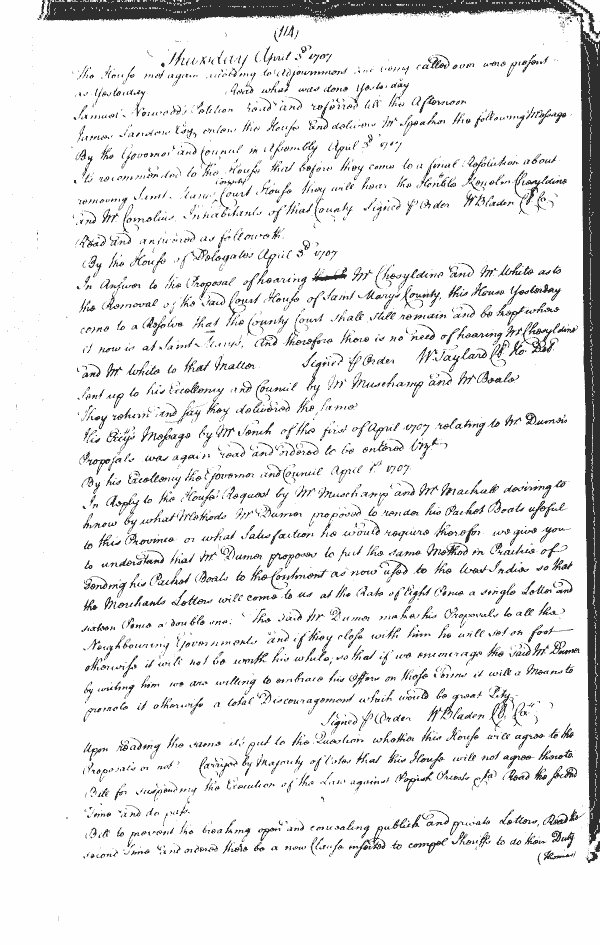 (114)
Thursday April 3d 1707
The House met again according to Adjournment and being called over were present
as Yesterday Read what was done Yesterday
Samuel Norwood's Petition Read and referred till the Afternoon
James Sanders Esqr enters the House and delivers Mr Speaker the following Message
By the Governor and Council in Assembly April 3d 1707
Its recommended to the House that before they come to a final Resolution about
removing Saint Marys County Court House they will hear the Honble Kenelm Cheseldine
and Mr Cornelius Inhabitants of that County Signed p Order W Bladen Cl Co
Read and answered as followeth
By the House of Delegates April 3d 1707
In Answer to the Proposal of hearing Mr Cheseldine and Mr White as to
the Removal of the said Court House of Saint Marys County, this House Yesterday
come to a Resolve that the County Court shall still remain and be kept where
it now is at Saint Marys, and therefore there is no need of hearing Mr Cheseldine
and Mr White to that Matter Signed p Order W Taylard Cl Ho Del.
Sent up to his Excellency and Council by Mr Muschamp and Mr Beale
They return and say they delivered the same
His Excys Message by Mr Tench of the first of April 1707 relating to Mr Dumers
Proposals was again read and ordered to be entered Vizt
By his Excellency the Governor and Council April 1st 1707
In Reply to the House's Request by Mr Muschamp and Mr Machall desiring to
know by what Methods Mr Dumer proposed to render his Packet Boats useful
to this Province or what Satisfaction he would require therefor we give you
to understand that Mr Dumer proposes to put the same Method in Practice of
sending his Packet Boats to the Continent as now used to the West Indies so that
the Merchants Letters will come to us at the Rate of Eight Pence a single Letter and
sixteen Pence a double one. The said Mr Dumer makes his Proposals to all the
Neighbouring Governments and if they close with him he will set on foot
otherwise it will not be worth his while, so that if we encourage the said Mr Dumer
by writing him we are willing to embrace his Offers on those Terms it will a Means to
promote it otherwise a total Discouragement which would be great Pity
Signed p Order W Bladen Cl Co
Upon reading the same its put to the Question whether this House will agree to the
Proposals or not. Carryed by Majority of Votes that this House will not agree thereto
Bill for suspending the Execution of the Law against Popish Priests &ca Read the second
Time and do pass.
Bill to prevent the breaking open and concealing publick and private Letters, Read the
second Time and ordered there be a new Clause inserted to compel Sheriffs to do their Duty